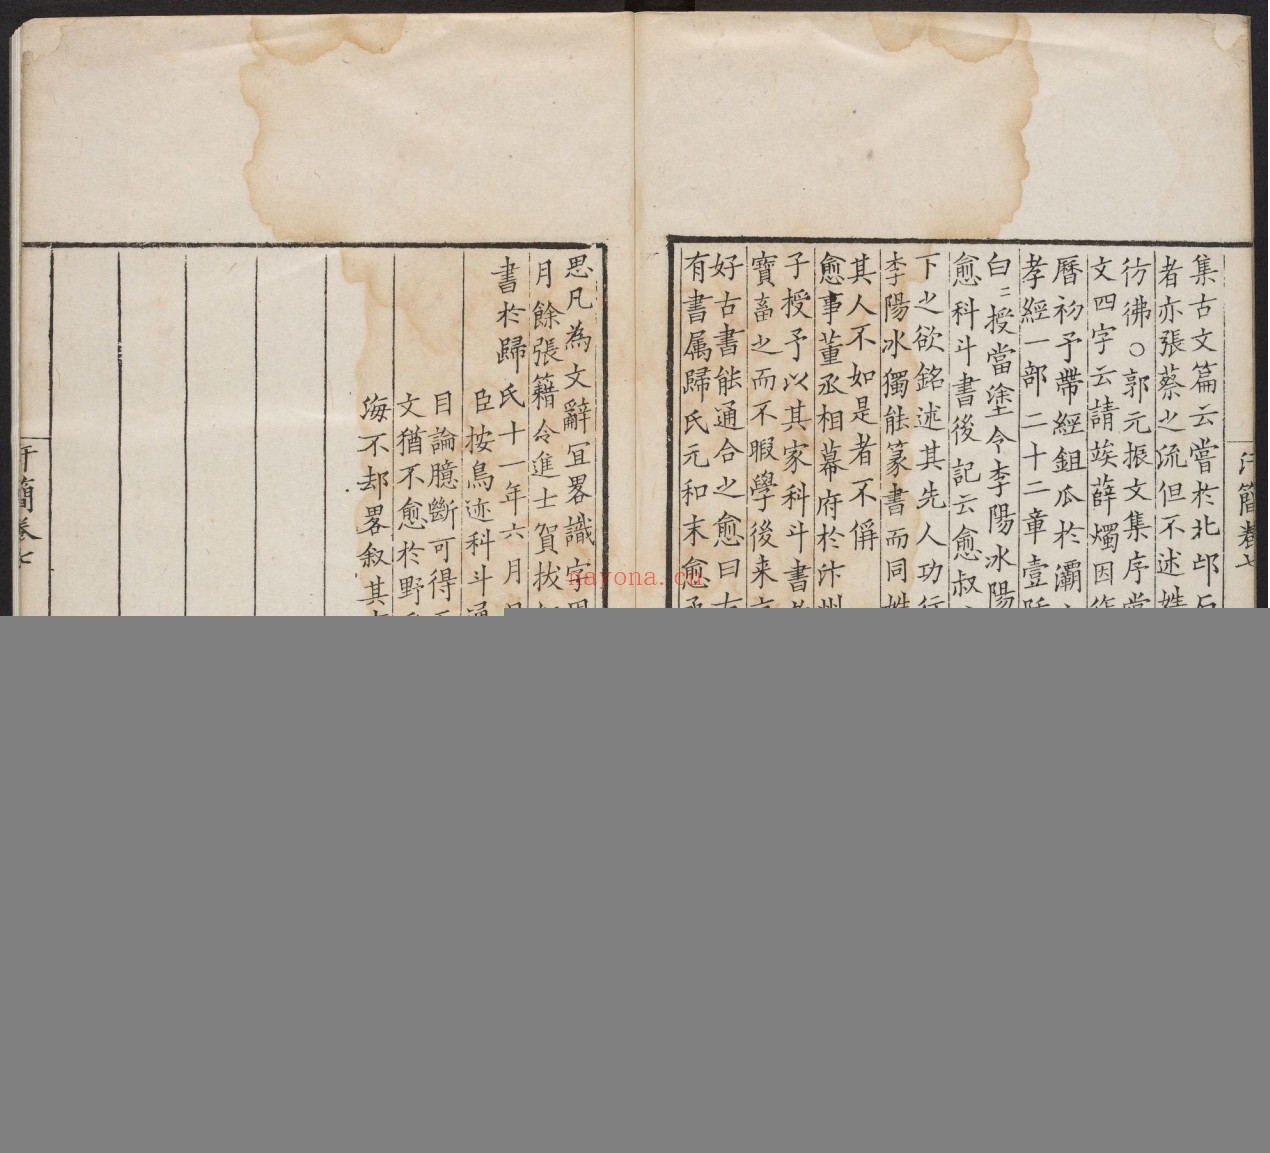 集古文篇云嘗於北邙
者亦張蔡之流但不述姓
彷彿○郭元振文集序當
文四字云請俟薛燭因
曆初予帶經鉏瓜於灞
孝經一部二十二章壹
白二授當塗令李陽冰陽
愈科斗書後記云愈叔
下之欲銘述其先人功行
李陽冰獨能篆書而同姓
其人不如是者不偁
愈事董丞相幕府於汴州
子授予以其家科斗書
寶畜之而不暇學後来
好古書能通合之愈曰古
有書属歸氏元和末愈
汗簡卷七
思凡為文辭冝畧識字
月餘張籍令進士賀拔
書於歸氏十一年六月
臣按鳥迹科斗通
目論臆斷可得
文猶不愈於野
海不却畧叙其
汗簡卷七
nayona.cn